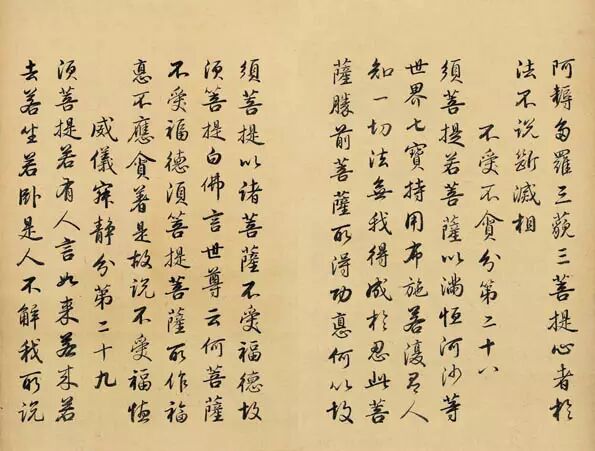 阿耨多羅三藐三菩提心者於
法不说斷滅相
不受不貪分第二十八
須菩提若菩薩以滿恒河沙等
世界七寶持用布施若復有人
知一切法無我得成於忍此菩
薩勝前菩薩所得功悳何以故
須菩提以诸菩薩不受福德故
須菩提白佛言世尊云何菩薩
不受福德須菩提菩薩所作福
悳不應貪著是故说不受福德
威儀寂静分第二十九
須菩提若有人言如来若来若
去若坐若卧是人不解我所说